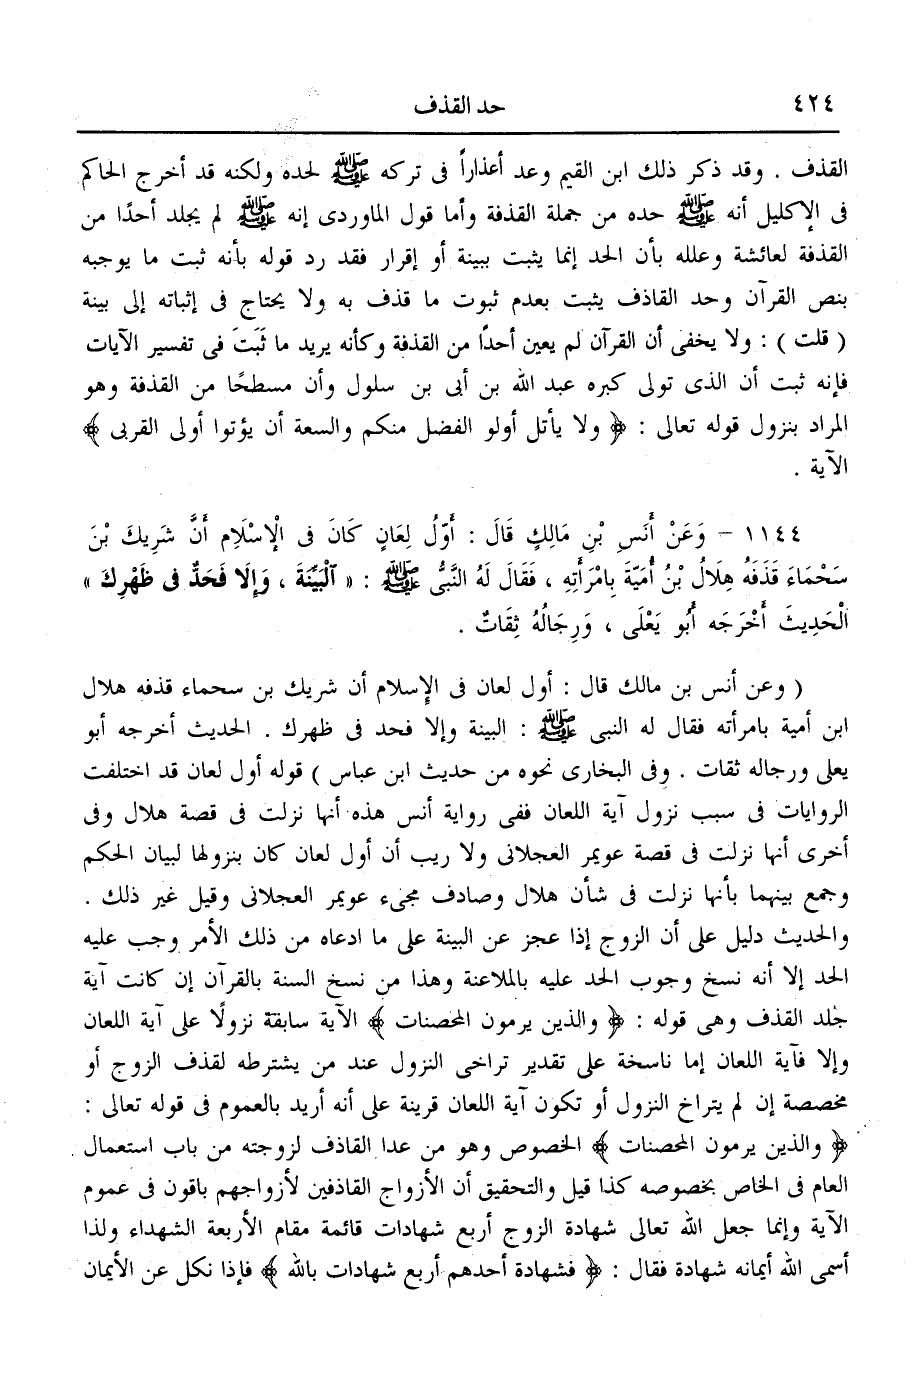 ٤٢٤
حد القذف
القذف . وقد ذكر ذلك ابن القيم وعد أعذاراً فى تركه ﷺ لحده ولكنه قد أخرج الحاكم
فى الإكليل أنه ﷺ حده من جملة القذفة وأما قول الماوردى إنه ﷺ لم يجلد أحدًا من
القذفة لعائشة وعلله بأن الحد إنما يثبت ببينة أو إقرار فقد رد قوله بأنه ثبت ما يوجبه
بنص القرآن وحد القاذف يثبت بعدم ثبوت ما قذف به ولا يحتاج فى إثباته إلى بينة
( قلت ) : ولا يخفى أن القرآن لم يعين أحداً من القذفة وكأنه يريد ما ثَبَتَ فى تفسير الآيات
فإنه ثبت أن الذى تولى كبره عبد الله بن أبى بن سلول وأن مسطحًا من القذفة وهو
المراد بنزول قوله تعالى : ﴿ ولا يأتل أولو الفضل منكم والسعة أن يؤتوا أولى القربى ﴾
الآية .
١١٤٤ - وَعَنْ أَنَسِ بْنِ مَالِكٍ قَالَ : أَوَّلُ لِعَانٍ كَانَ فِى الْإِسْلَامِ أَنَّ شَرِيكَ بْنَ
سَحْمَاءَ قَذَفَهُ هِلَالُ بْنُ أُمَيَّةَ بِامْرَأَتِهِ ، فَقَالَ لَهُ النَّبِىُّ ﷺ : « الْبَيِّنَةَ ، وَإِلَّا فَحَدٌّ فِى ظَهْرِكَ »
الْحَدِيثَ أَخْرَجَه أَبُو يَعْلَى ، وَرِجَالُهُ ثِقَاتٌ .
( وعن أنس بن مالك قال : أول لعان فى الإسلام أن شريك بن سحماء قذفه هلال
ابن أمية بامرأته فقال له النبى ﷺ : البينة وإلا فحد فى ظهرك . الحديث أخرجه أبو
يعلى ورجاله ثقات . وفى البخارى نحوه من حديث ابن عباس ) قوله أول لعان قد اختلفت
الروايات فى سبب نزول آية اللعان ففى رواية أنس هذه أنها نزلت فى قصة هلال وفى
أخرى أنها نزلت فى قصة عويمر العجلانى ولا ريب أن أول لعان كان بنزولها لبيان الحكم
وجمع بينهما بأنها نزلت فى شأن هلال وصادف مجىء عويمر العجلانى وقيل غير ذلك .
والحديث دليل على أن الزوج إذا عجز عن البينة على ما ادعاه من ذلك الأمر وجب عليه
الحد إلا أنه نسخ وجوب الحد عليه بالملاعنة وهذا من نسخ السنة بالقرآن إن كانت آية
جلد القذف وهى قوله : ﴿ والذين يرمون المحصنات ﴾ الآية سابقة نزولًا على آية اللعان
وإلا فآية اللعان إما ناسخة على تقدير تراخى النزول عند من يشترطه لقذف الزوج أو
مخصصة إن لم يتراخ النزول أو تكون آية اللعان قرينة على أنه أريد بالعموم فى قوله تعالى :
﴿ والذين يرمون المحصنات ﴾ الخصوص وهو من عدا القاذف لزوجته من باب استعمال
العام فى الخاص بخصوصه كذا قيل والتحقيق أن الأزواج القاذفين لأزواجهم باقون فى عموم
الآية وإنما جعل الله تعالى شهادة الزوج أربع شهادات قائمة مقام الأربعة الشهداء ولذا
أسمى الله أيمانه شهادة فقال : ﴿ فشهادة أحدهم أربع شهادات بالله ﴾ فإذا نكل عن الأيمان